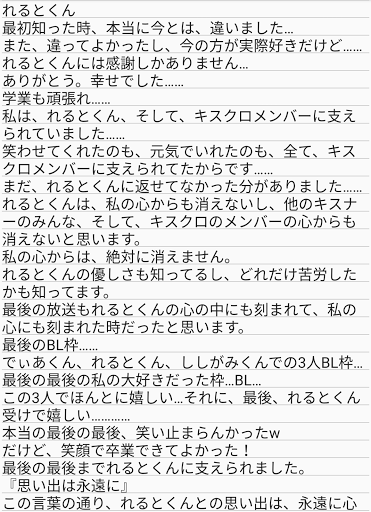 れるとくん
最初知った時、本当に今とは、違いました…
また、違ってよかったし、今の方が実際好きだけど……
れるとくんには感謝しかありません…
ありがとう。幸せでした……
学業も頑張れ……
私は、れるとくん、そして、キスクロメンバーに支え
られていました……
笑わせてくれたのも、元気でいれたのも、全て、キス
クロメンバーに支えられてたからです……
まだ、れるとくんに返せてなかった分がありました……
れるとくんは、私の心からも消えないし、他のキスナ
ーのみんな、そして、キスクロのメンバーの心からも
消えないと思います。
私の心からは、絶対に消えません。
れるとくんの優しさも知ってるし、どれだけ苦労した
かも知ってます。
最後の放送もれるとくんの心の中にも刻まれて、私の
心にも刻まれた時だったと思います。
最後のBL枠……
でぃあくん、れるとくん、ししがみくんでの3人BL枠…
最後の最後の私の大好きだった枠…BL…
この3人でほんとに嬉しい…それに、最後、れるとくん
受けで嬉しい…………
本当の最後の最後、笑い止まらんかったw
だけど、笑顔で卒業できてよかった！
最後の最後までれるとくんに支えられました。
『思い出は永遠に』
この言葉の通り、れるとくんとの思い出は、永遠に心